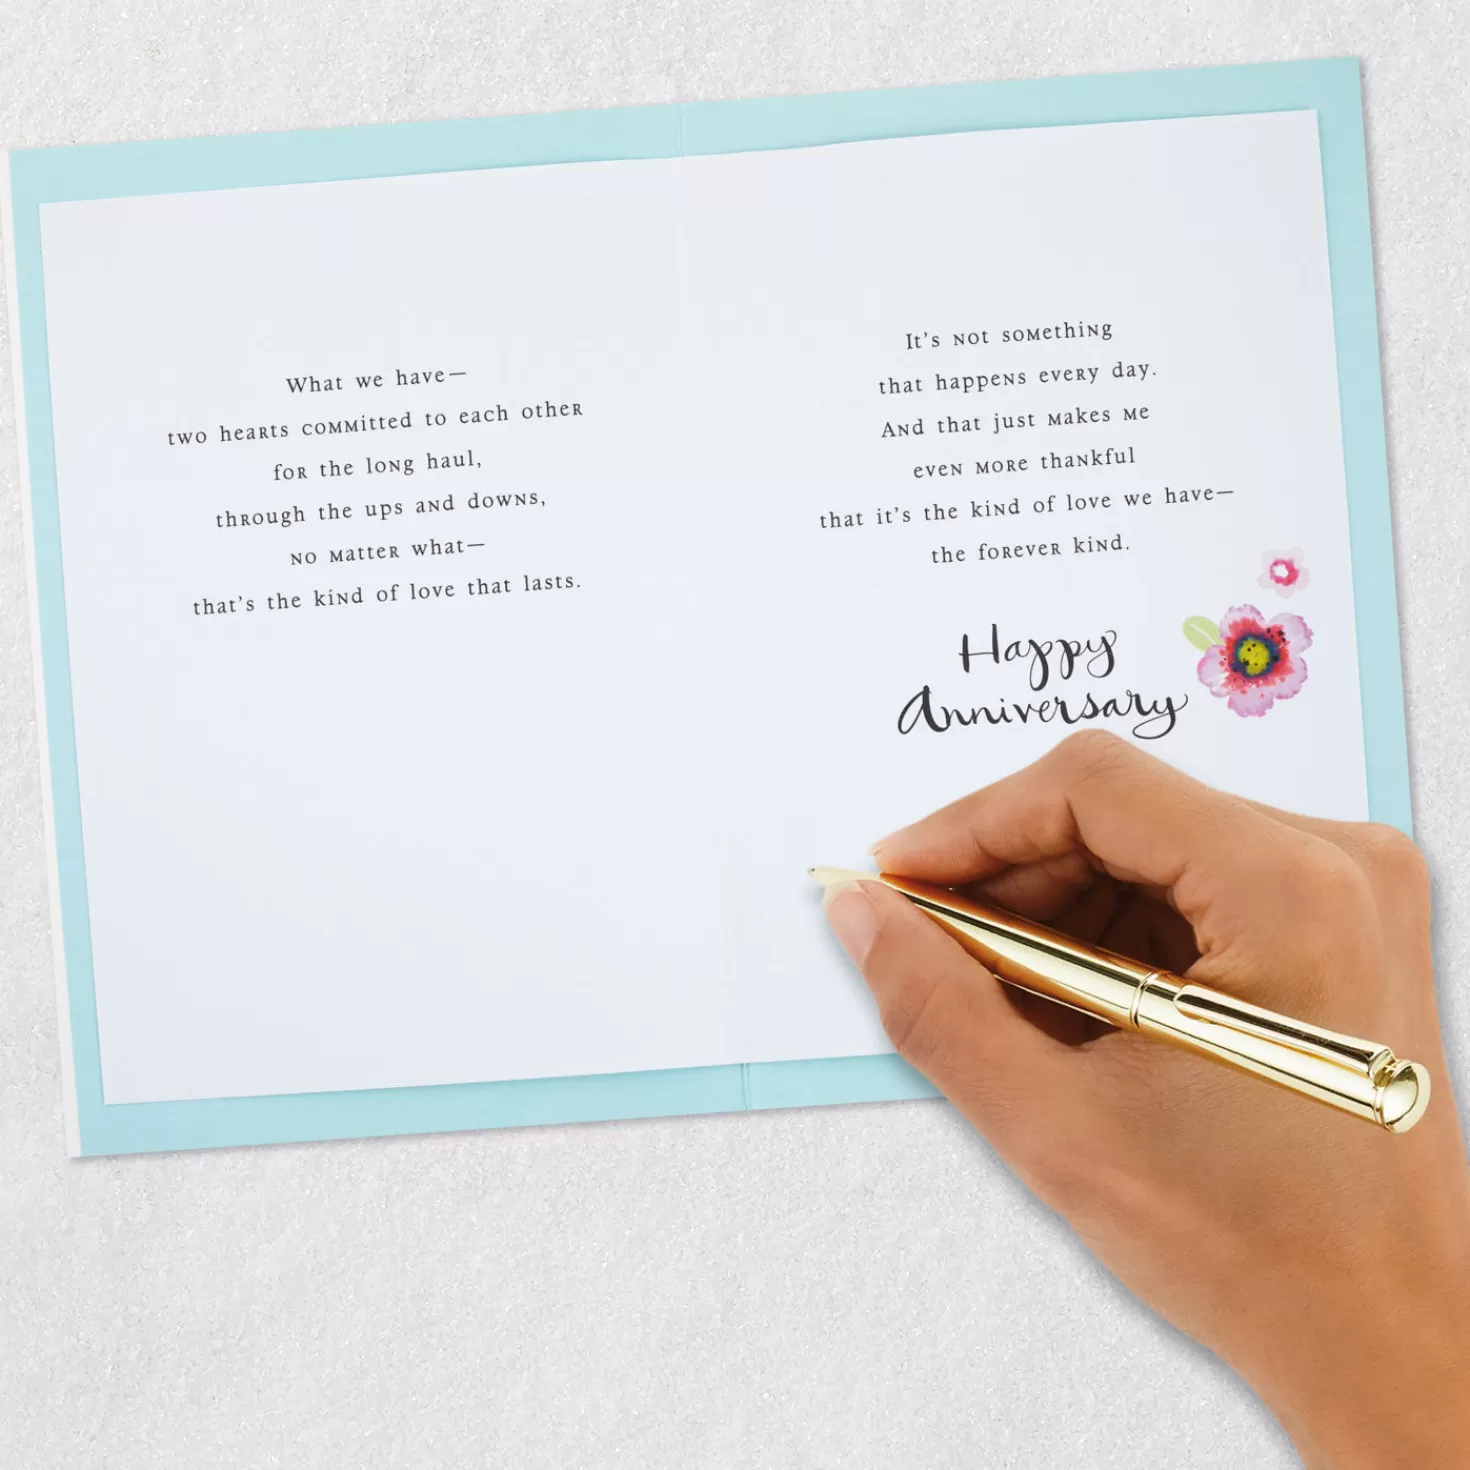 What we have—
two hearts committed to each other
for the long haul,
through the ups and downs,
no matter what—
that's the kind of love that lasts.
It's not something
that happens every day.
And that just makes me
even more thankful
that it's the kind of love we have—
the forever kind.
Happy
Anniversary